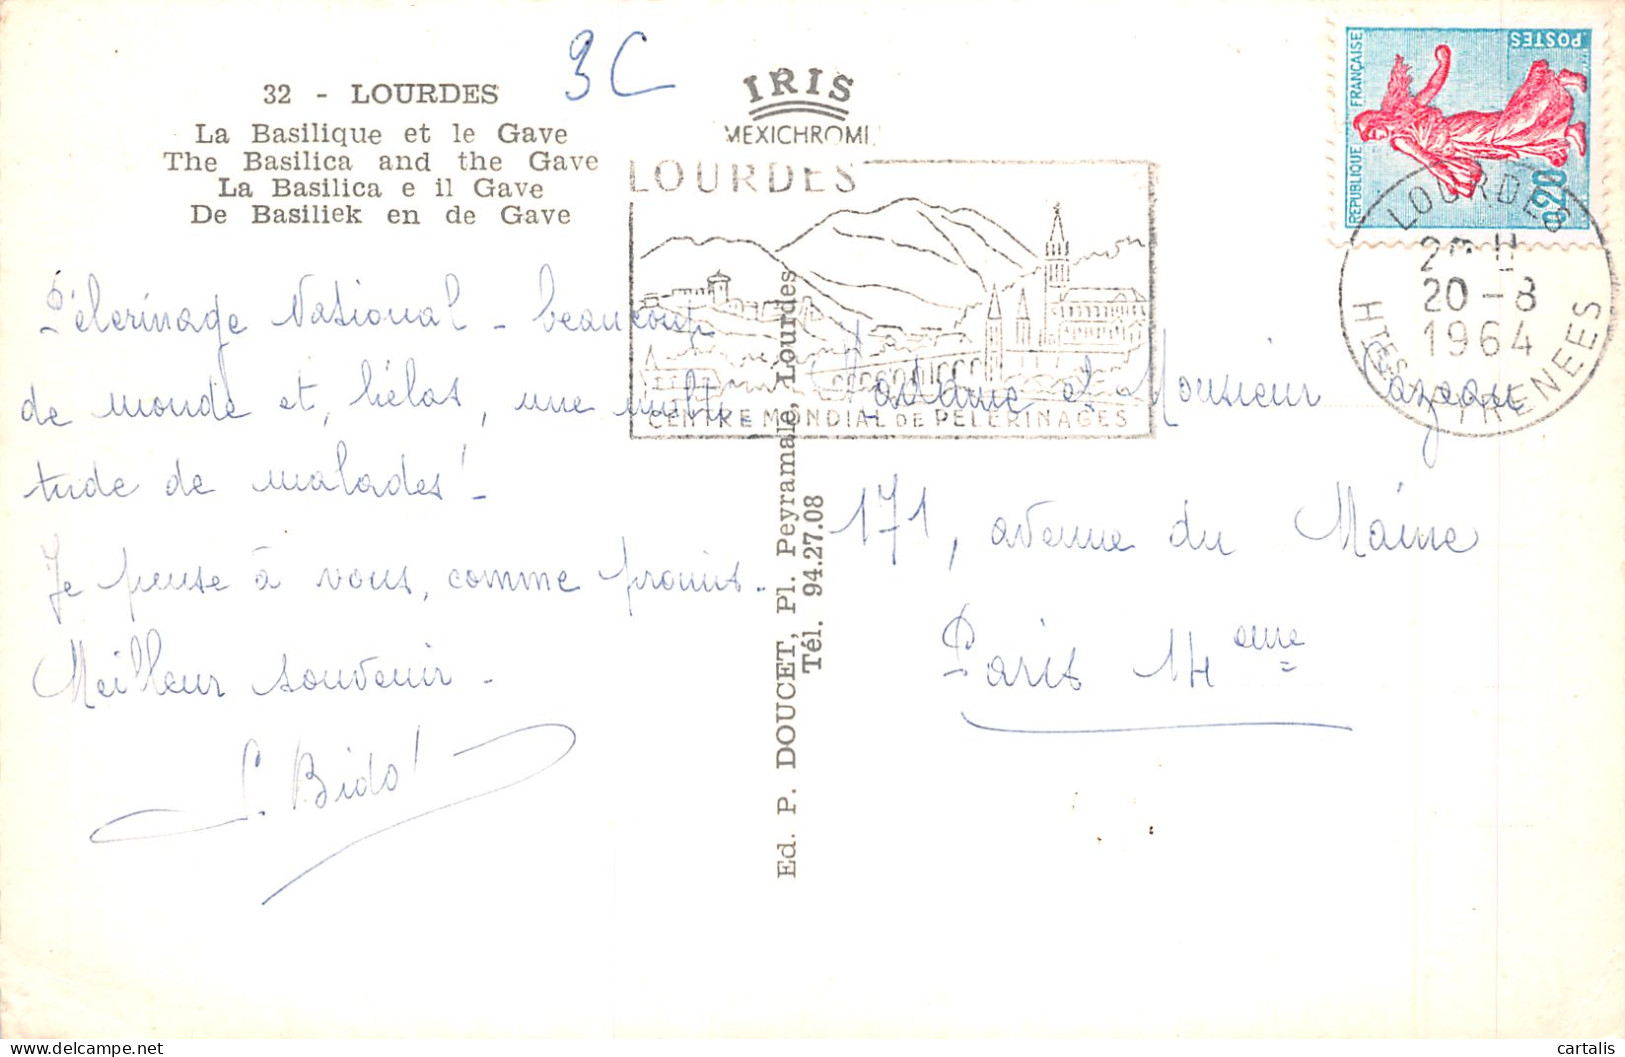 32 - LOURDES
La Basilique et le Gave
The Basilica and the Gave
La Basilica e il Gave
De Basiliek en de Gave
3C
IRIS
MEXICHROME
LOURDES
CENTRE MONDIAL DE PELERINAGES
REPUBLIQUE FRANÇAISE
POSTES
0,20
LOURDES
20 H
20 - 8
1964
HTES PYRENEES
Pélerinage National - beaucoup
de monde et, hélas, une multi-
tude de malades! -
Je pense à vous, comme promis.
Meilleur souvenir -
S. Bidot
Ed. P. DOUCET, Pl. Peyramale, Lourdes
Tél. 94.27.08
Madame et Monsieur Cazeau
171, avenue du Maine
Paris 14eme
cartalis